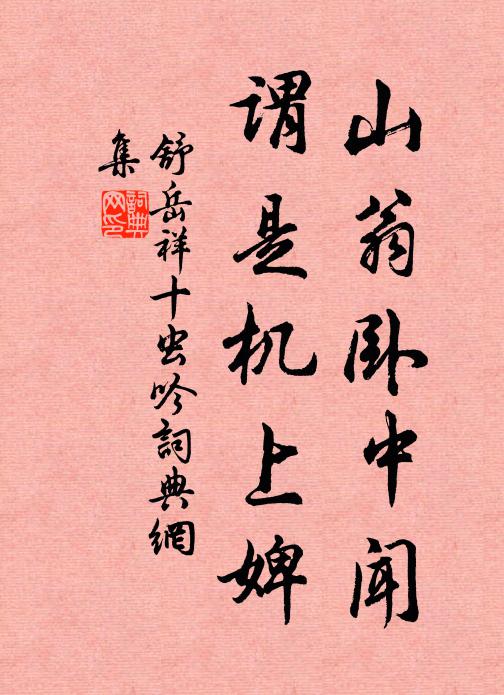 山翁卧中闻
谓是机上婢
舒岳祥十虫吟詞典網
集
詞典網印